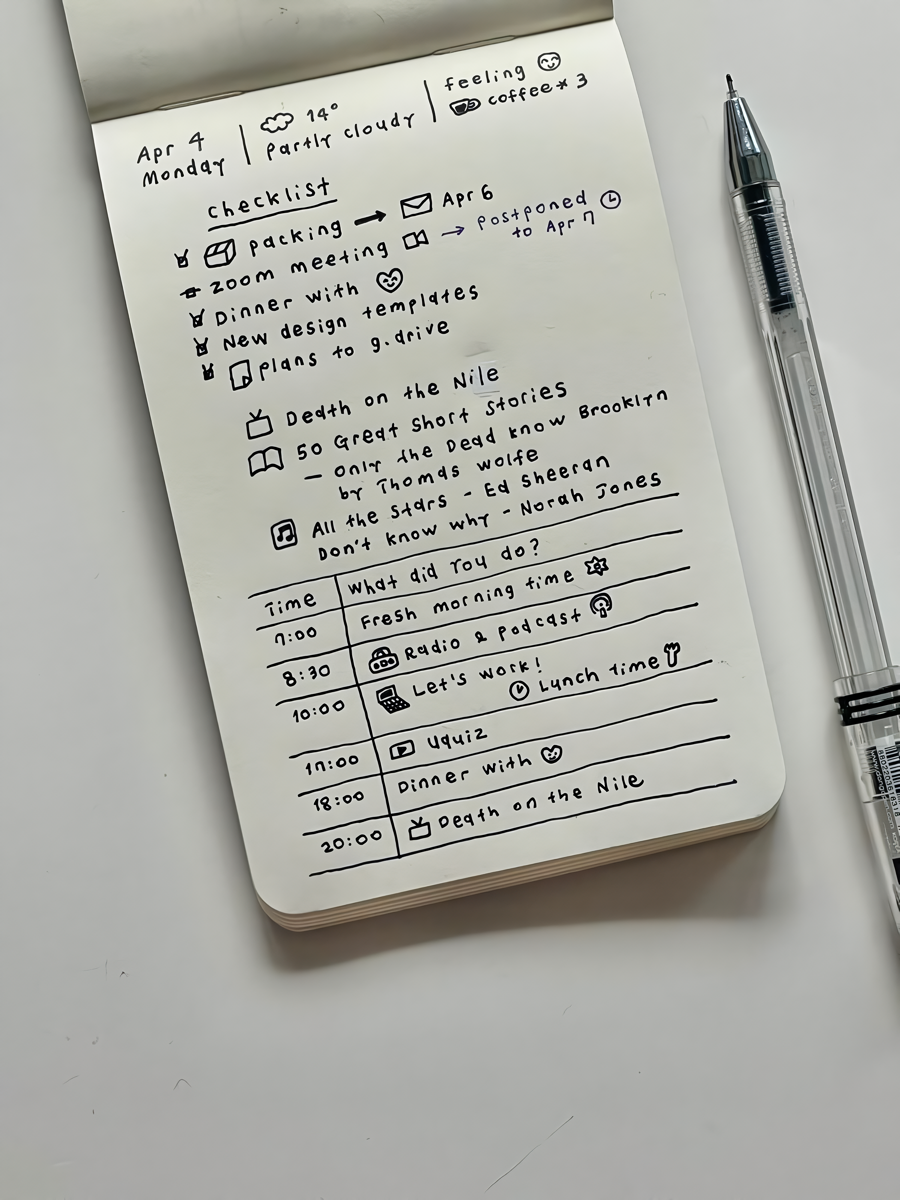 Apr 4
Monday
14°
Partly cloudy
feeling
coffee * 3
checklist
packing → Apr 6
zoom meeting → postponed
to Apr 7
Dinner with
New design templates
plans to g.drive
Death on the Nile
50 Great Short Stories
— only the Dead know Brooklyn
by Thomas wolfe
All the stars - Ed Sheeran
Don't know why - Norah Jones
Time What did you do?
7:00 Fresh morning time
8:30 Radio & podcast
10:00 Let's work!
Lunch time
17:00 Uquiz
18:00 Dinner with
20:00 Death on the Nile